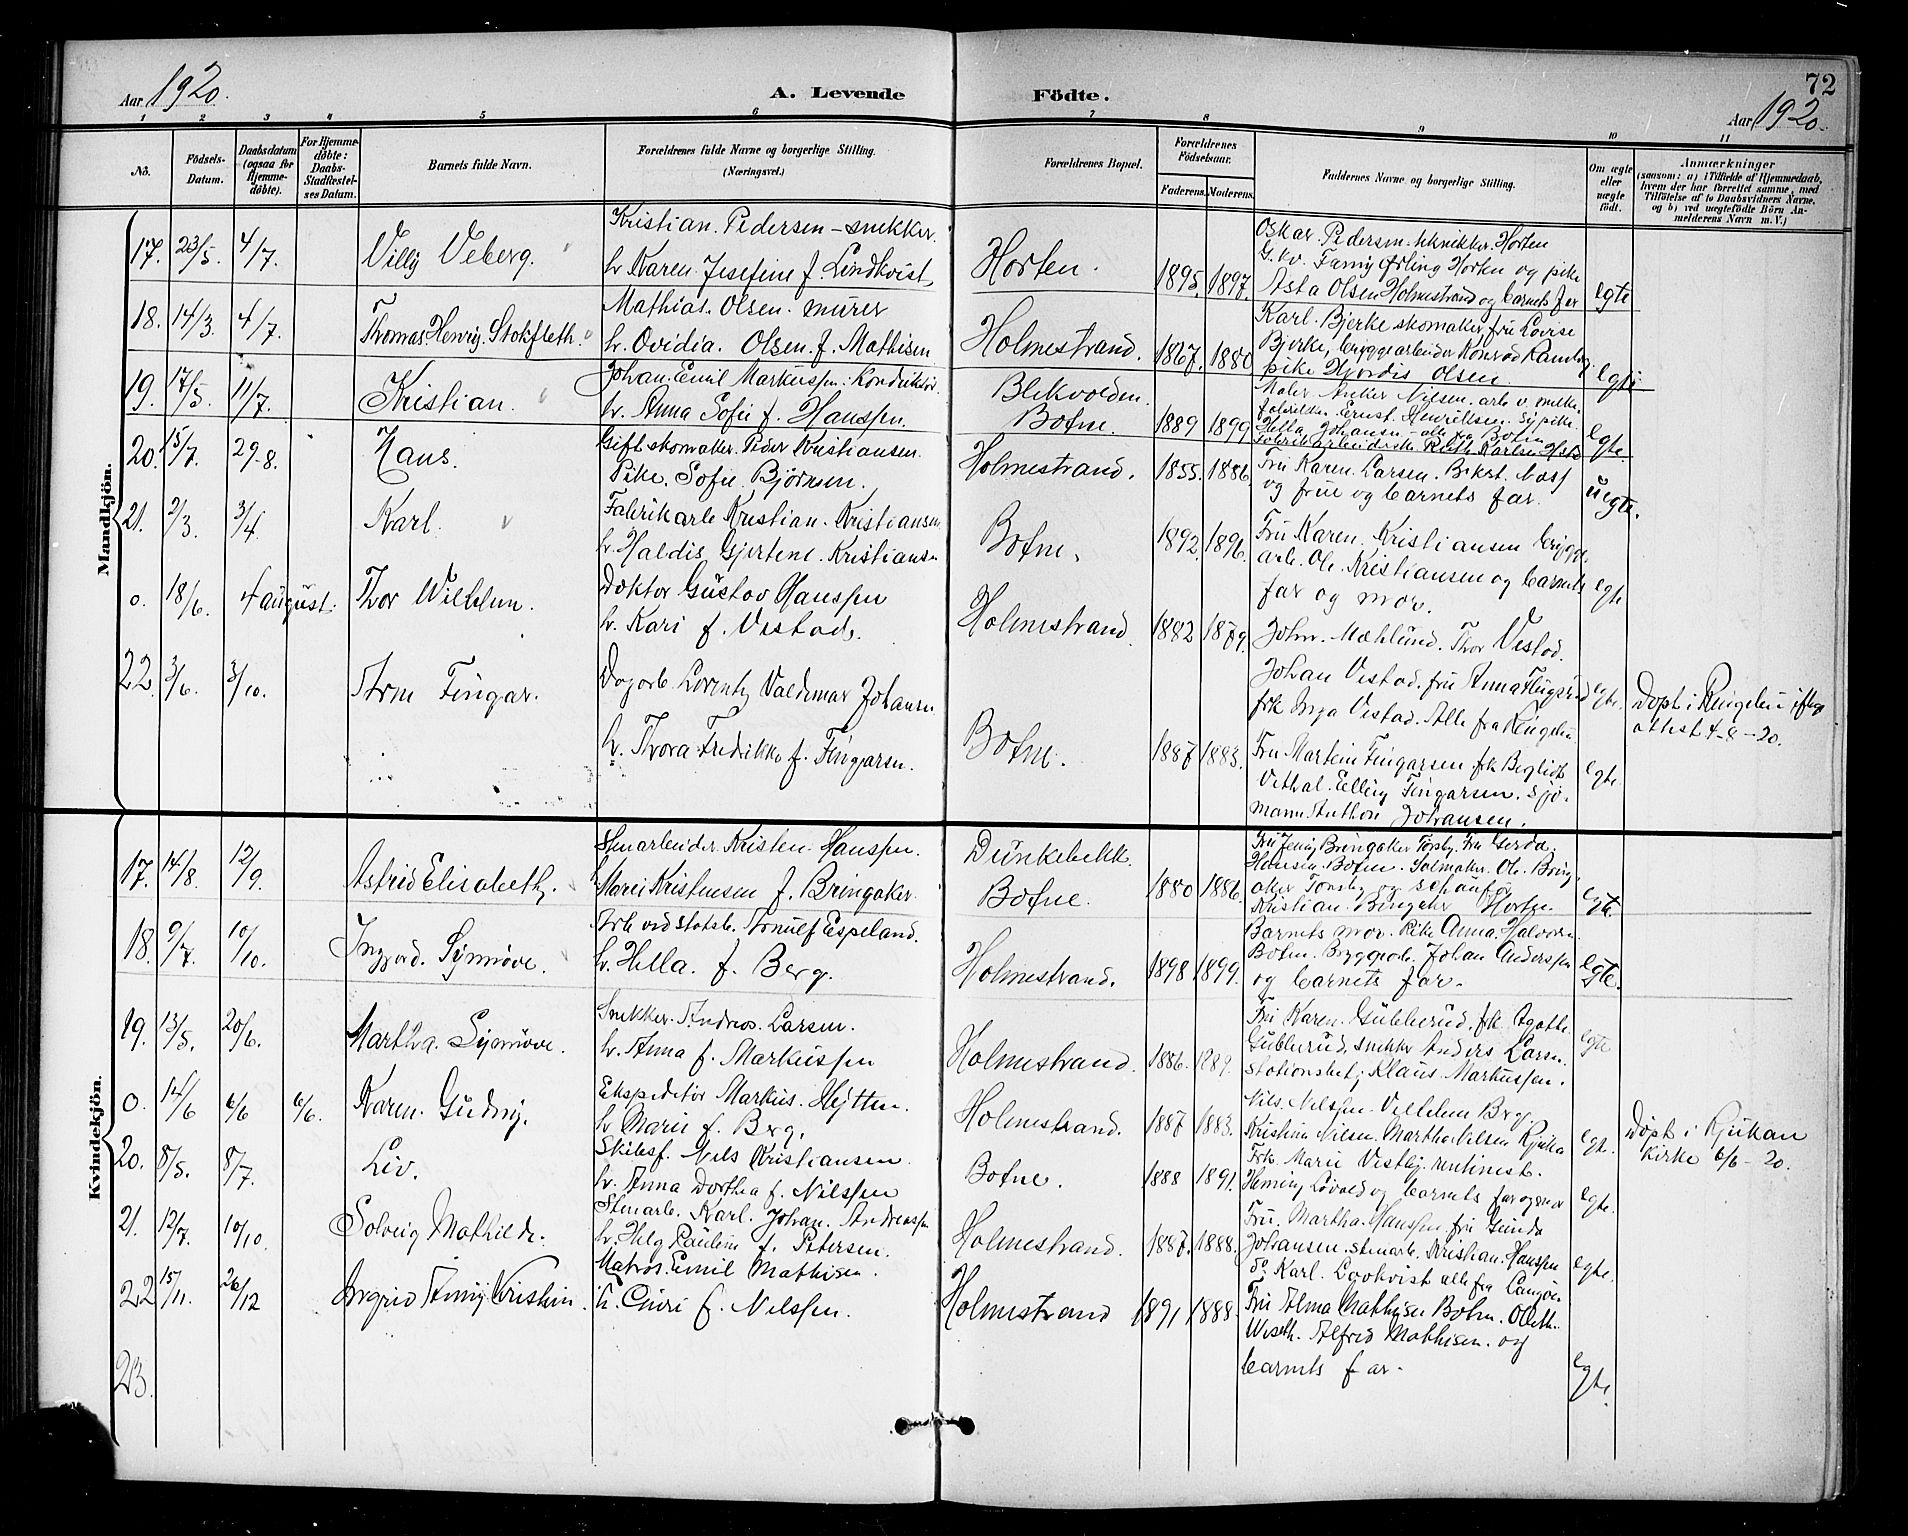 Aar 1920.
A. Levende Födte.
72
Aar 1920.
1 2 3 4 5 6 7 8 9 10 11
No.
Födsels-Datum.
Daabsdatum (ogsaa for Hjemmedøbte).
For Hjemmedøbte: Daabs-Stadfæstelses Datum.
Barnets fulde Navn.
Forældrenes fulde Navne og borgerlige Stilling. (Næringsvei.)
Forældrenes Bopæl.
Forældrenes Födselsaar.
Faderens. Moderens.
Faddernes Navne og borgerlige Stilling.
Om ægte eller uægte født.
Anmærkninger
(saasom: a) i Tilfælde af Hjemmedaab, hvem der har forrettet samme, med Tilföielse af to Daabsvidners Navne, og b) ved uægtefödte Börn Anmelderens Navn m. V.)
Mandkjön.
17. 23/5. 4/7. Villy Veberg. Kristian Pedersen - snekker.
h. Karen Josefine f. Lindkvist Horten. 1895. 1897.
Oskar Pedersen tekniker Horten
G.kv. Fanny Ørling Horten og pike
Asta Olsen Holmestrand og barnets far egte
18. 14/3. 4/7. Thomas Henry Stokfleth. Mathias Olsen. murer
h. Ovidia Olsen f. Mathisen Holmestrand. 1867. 1880
Karl Bjerke skomaker, fru Lovise
Bjerke, bryggearbeider Konrad
pike Hjordis Olsen. egte
19. 17/5 11/7. Kristian. Johan Emil Markussen
h. Anna Sofie f. Hanssen. Blekvolden Botne. 1889 1899
Maler Anker Nilsen. arb. v. melke-
Ernst Henriksen. sypike.
Hella Johansen - alle fra Botne egte.
Fabrikarbeiderske Ruth Karlsen
20. 15/7. 29-8. Hans. Gift skomaker Peder Kristiansen
Pike. Sofie Bjørnsen. Holmestrand. 1855. 1886
Fru Karen Larsen. Næss
og frue og barnets far. uegte.
21. 2/3. 3/4. Karl. Fabrikarb Kristian Kristiansen
h. Haldis Gjertine Kristiansen Botne. 1892. 1896.
Fru Karen Kristiansen brygge
arb. Ole Kristiansen og barnets
far og mor. egte
0. 18/6. 4 august. Thor Wilhelm. Doktor Gustav Hanssen
h. Kari f. Vestad. Holmestrand. 1882 1879.
John Mæhlund. Thor Vestad.
Johan Vestad. fru Anna
frk Inga Vestad. Alle fra Ringebu egte. Døpt i Ringebu iflg.
attest 4-8-20.
22. 3/6. 3/10. Arne Fingar. Dagarb. Lorentz Valdemar Johansen
h. Thora Fredikke f. Fingarsen. Botne. 1887 1883.
Fru Martine Fingarsen. frk
Elling Fingarsen. sjø-
mann Anthon Johansen. egte
Kvindekjön.
17. 14/8. 12/9. Astrid Elisabeth. Stenarbeider Kristen Hanssen.
h. Marei Kristensen f. Bringaker. Dunkebekk Botne. 1880 1886.
Fru Jenny Bringaker Tønsby. Fru Gerda
Hansen Botne. Salmaker Ole Bring-
aker Tønsby og schaufør
Kristian Bringaker Horten. egte.
18. 9/7. 10/10. Ingjerd Synnøve. Arb ved statsb. Arnulf Espeland.
h. Hella f. Berg. Holmestrand. 1898 1899.
Barnets mor. Pike Anna Halvorsen
Botne. Bryggearb. Johan Anderssen
og barnets far. egte.
19. 13/5. 20/6. Martha Synnøve. Snekker Andreas Larsen.
h. Anna f. Markussen Holmestrand. 1886. 1889.
Fru Karen Gubberud, frk Agathe
Gubberud, snekker Anders Larsen.
stationsbetj Klaus Markussen. egte
0. 14/6 6/6 6/6. Karen Gudny. Ekspeditør Markus Hytten.
h. Marie f. Berg. Holmestrand. 1887 1883.
Nils Nilssen. Vilhelm Berg
Kristine Nilsen. Martha Nilsen Rjukan egte. Døpt i Rjukan
kirke 6/6-20.
20. 8/5. 8/7. Liv. Skibsf. Nils Kristiansen.
h. Anna Dorthea f. Nilssen Botne. 1888 1891.
Frk. Marie Vestby. rentinest.
Heming Løvald og barnets far og mor egte.
21. 12/7. 10/10. Solveig Mathilde. Stenarb. Karl Johan Andreassen
h. Helg Pauline f. Petersen. Holmestrand. 1887. 1888.
Fru Martha Hanssen. fru Gunda
Johansen. stenarb. Kristian Hanssen
Do Karl Lövkvist alle fra Langøen egte.
22. 15/11. 26/12 Ingrid Anny Kristin. Matros Emil Mathisen.
h. Guri f. Nilssen. Holmestrand 1891 1888.
Fru Alma Mathisen Botne.
Alfred Mathisen og
barnets far. egte.
23.